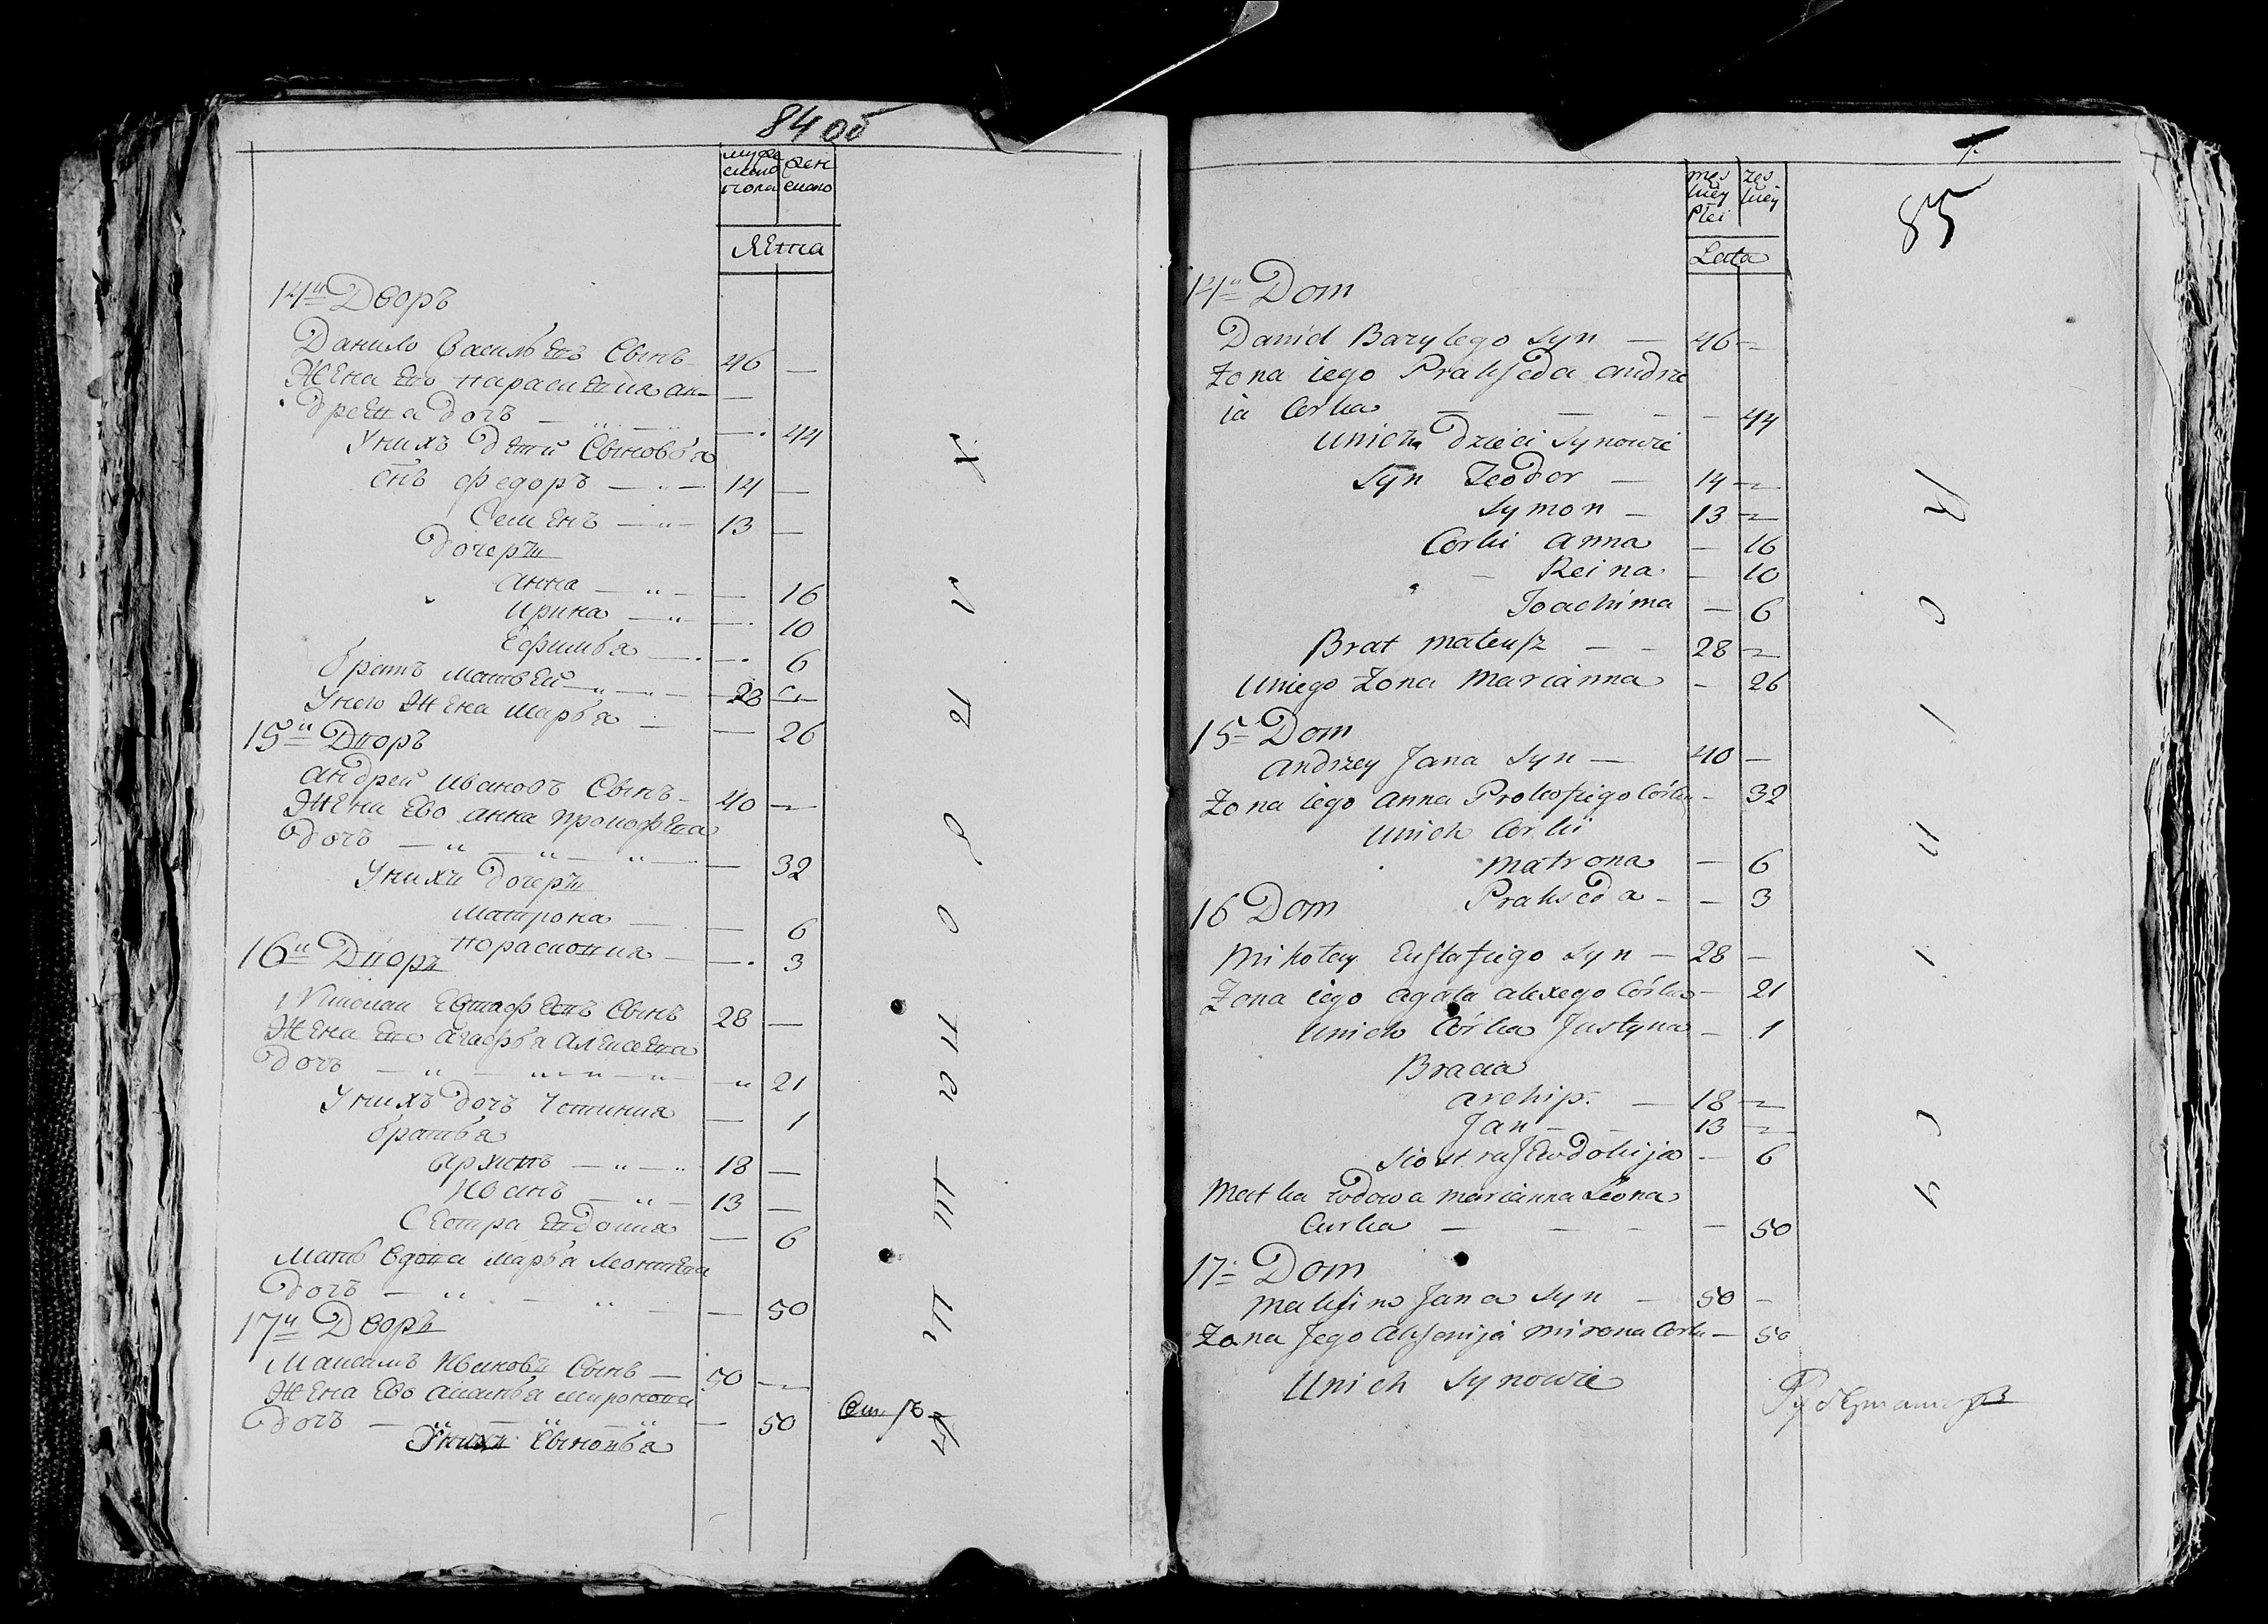 84 об
мужескаго пола
женскаго
лѣта
14й Дворъ
Данило Васильевъ Сынъ 46 —
Жена Ево Парасковия Ан- —
дреева дочь — — 44
У нихъ Дети Сыновья
снъ Федоръ — 14 —
Семенъ — 13 —
Дочери
Анна — — 16
Ирина — — 10
Ефимья — — 6
братъ Матвей — 28 —
У него Жена Марья — — 26
15й Дворъ
Андрей Ивановъ Сынъ 40 —
Жена Ево Анна Прокофева
дочь — — 32
У нихъ Дочери
Матрона — — 6
Парасковия — — 3
16й Дворъ
Николаи Евтафевъ Сынъ 28 —
Жена Ево Агафья Алексева
дочь — — 21
У нихъ дочь Устиния — 1
братья
Архипъ — 18 —
Иванъ — 13 —
Сестра Евдокия — 6
Мать вдова Марья Леонтева
дочь — — 50
17й Дворъ
Максимъ Ивановъ Сынъ — 50 —
Жена Ево Аксинья Миронова
дочь — — 50
У нихъ Сыновья
85
męs kiey Płci
żes kiey
Lata
14й Dom
Daniel Bazylego Syn — 46 —
Żona iego Prakseda Andrze
ia Corka — — — 44
U nich Dzieci Synowie
Syn Teodor — 14 —
Symon — 13 —
Corki Anna — 16
Reina — 10
Joachima — 6
Brat Mateusz — 28 —
U niego Żona Marianna — 26
15 Dom
Andrzey Jana Syn — 40 —
Żona iego Anna Prokofiego Córka — 32
U nich Corki
Matrona — 6
Prakseda — 3
16 Dom
Mikołay Eustafiego Syn — 28 —
Żona iego Agata Alexego Córka — 21
U nich Córka Justyna — 1
Bracia
Archip — 18 —
Jan — 13 —
Siostra Jewdokija — 6
Matka wdowa Marianna Leona
Curka — — 50
17 Dom
Maksim Jana Syn — 50 —
Żona Jego Aksenija Mirona Corka — 50
U nich Synowie